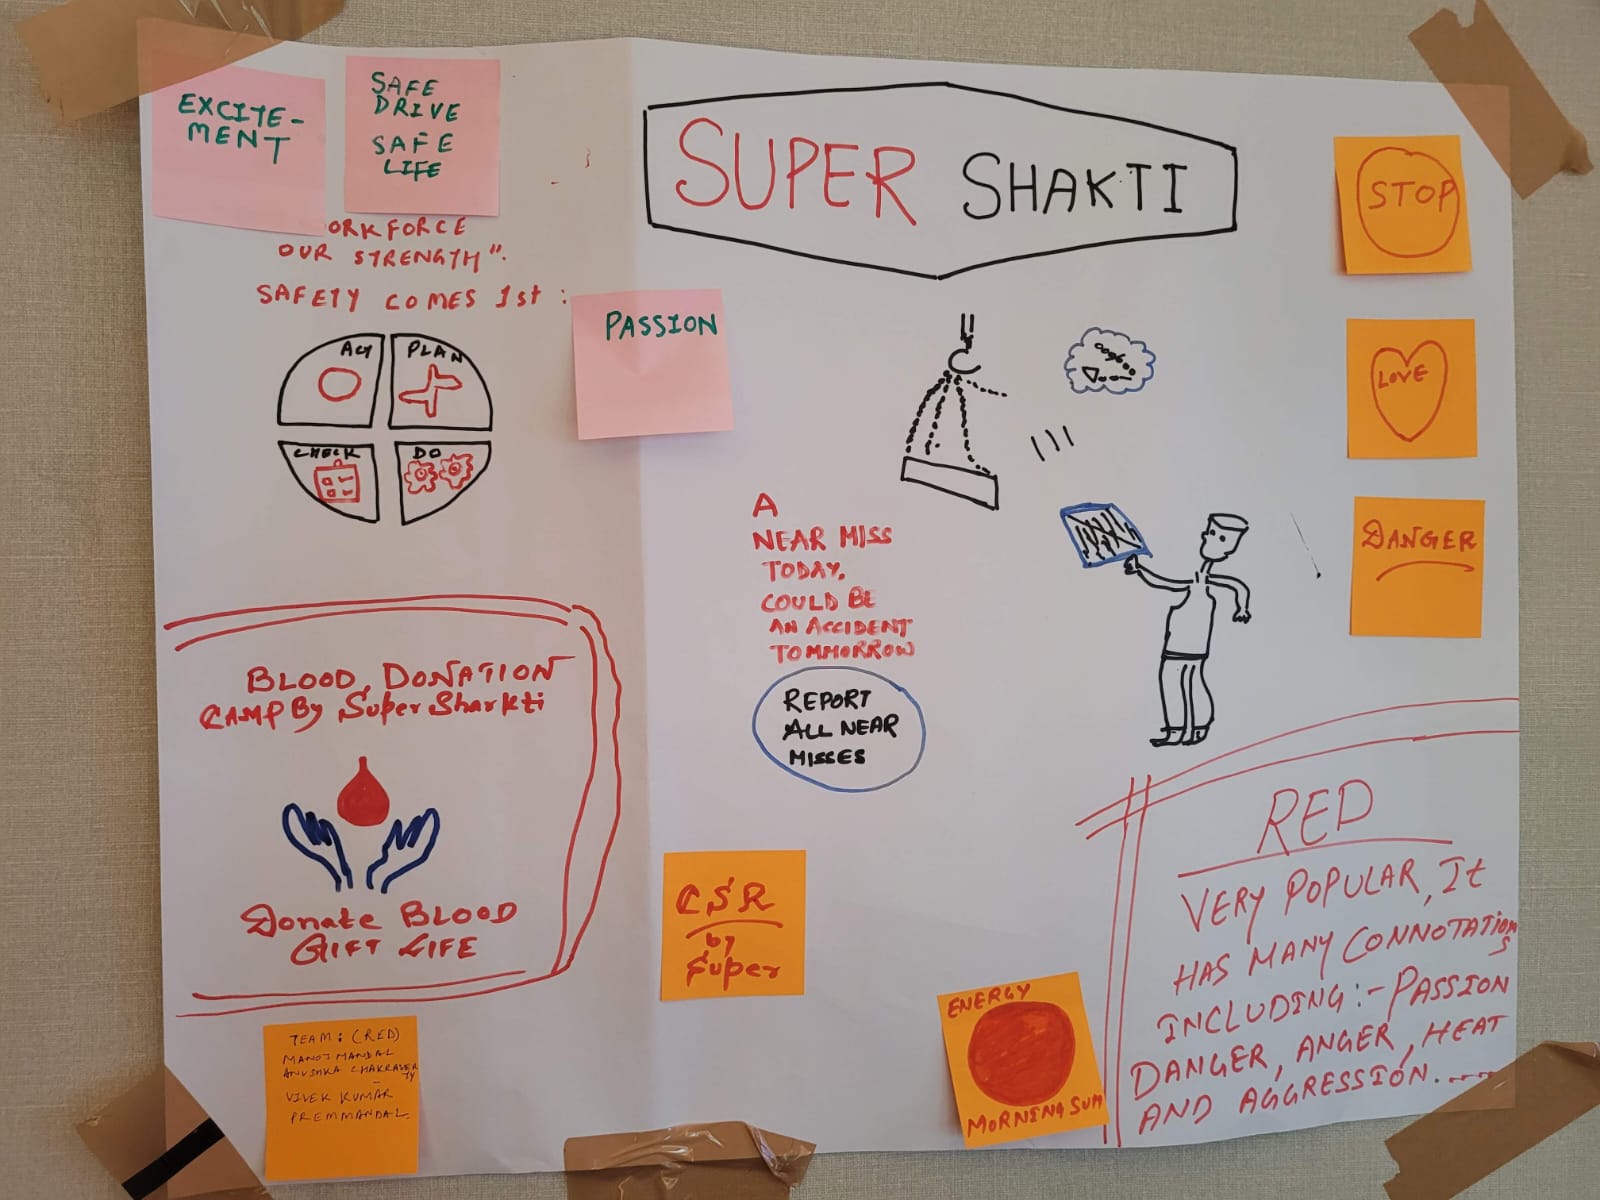 EXCITE-
MENT
SAFE
DRIVE
SAFE
LIFE
ORKFORCE
OUR STRENGTH".
SAFETY COMES 1st :
ACT
PLAN
CHECK
DO
PASSION
SUPER SHAKTI
STOP
LOVE
DANGER
A
NEAR MISS
TODAY,
COULD BE
AN ACCIDENT
TOMMORROW
REPORT
ALL NEAR
MISSES
BLOOD DONATION
CAMP By Super Sharkti
Donate BLOOD
GIFT LIFE
CSR
by
Super
TEAM : (RED)
MANOJ MANDAL
ANUSHKA CHAKRAVER
TY
VIVEK KUMAR
PREM MANDAL.
ENERGY
MORNING SUN
RED
VERY POPULAR, It
HAS MANY CONNOTATION
S
INCLUDING:- PASSION
DANGER, ANGER, HEAT
AND AGGRESSION.....